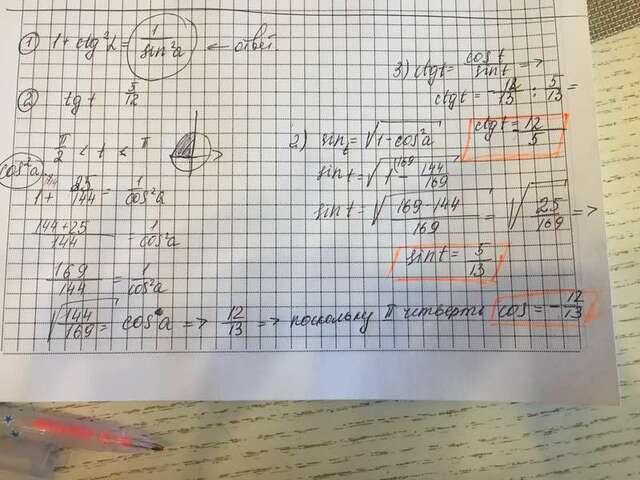 ① 1 + ctg²α = 1/sin²α ← ответ
② tg t 5/12
π/2 < t < π
cos²α
1 + 25/144 = 1/cos²α
144+25/144 = 1/cos²α
169/144 = 1/cos²α
√144/169 = cos²α => -12/13 => поскольку II четверть cos = -12/13
2) sin t = √1-cos²α
sin t = √1 - 144/169
sin t = √169-144/169 = √25/169 =>
sin t = 5/13
3) ctg t = cos t/sin t =>
ctg t = -12/13 : 5/13 =
ctg t = 12/5